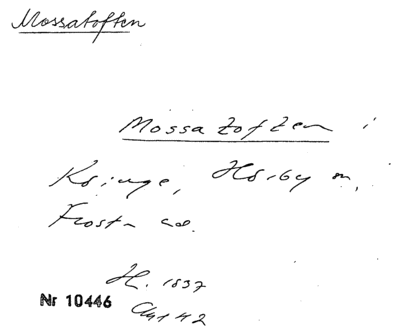 Mossatoften
Mossatoften i
Kringe, Hörby sn,
Frosta hd.
H. 1837
Nr 10446